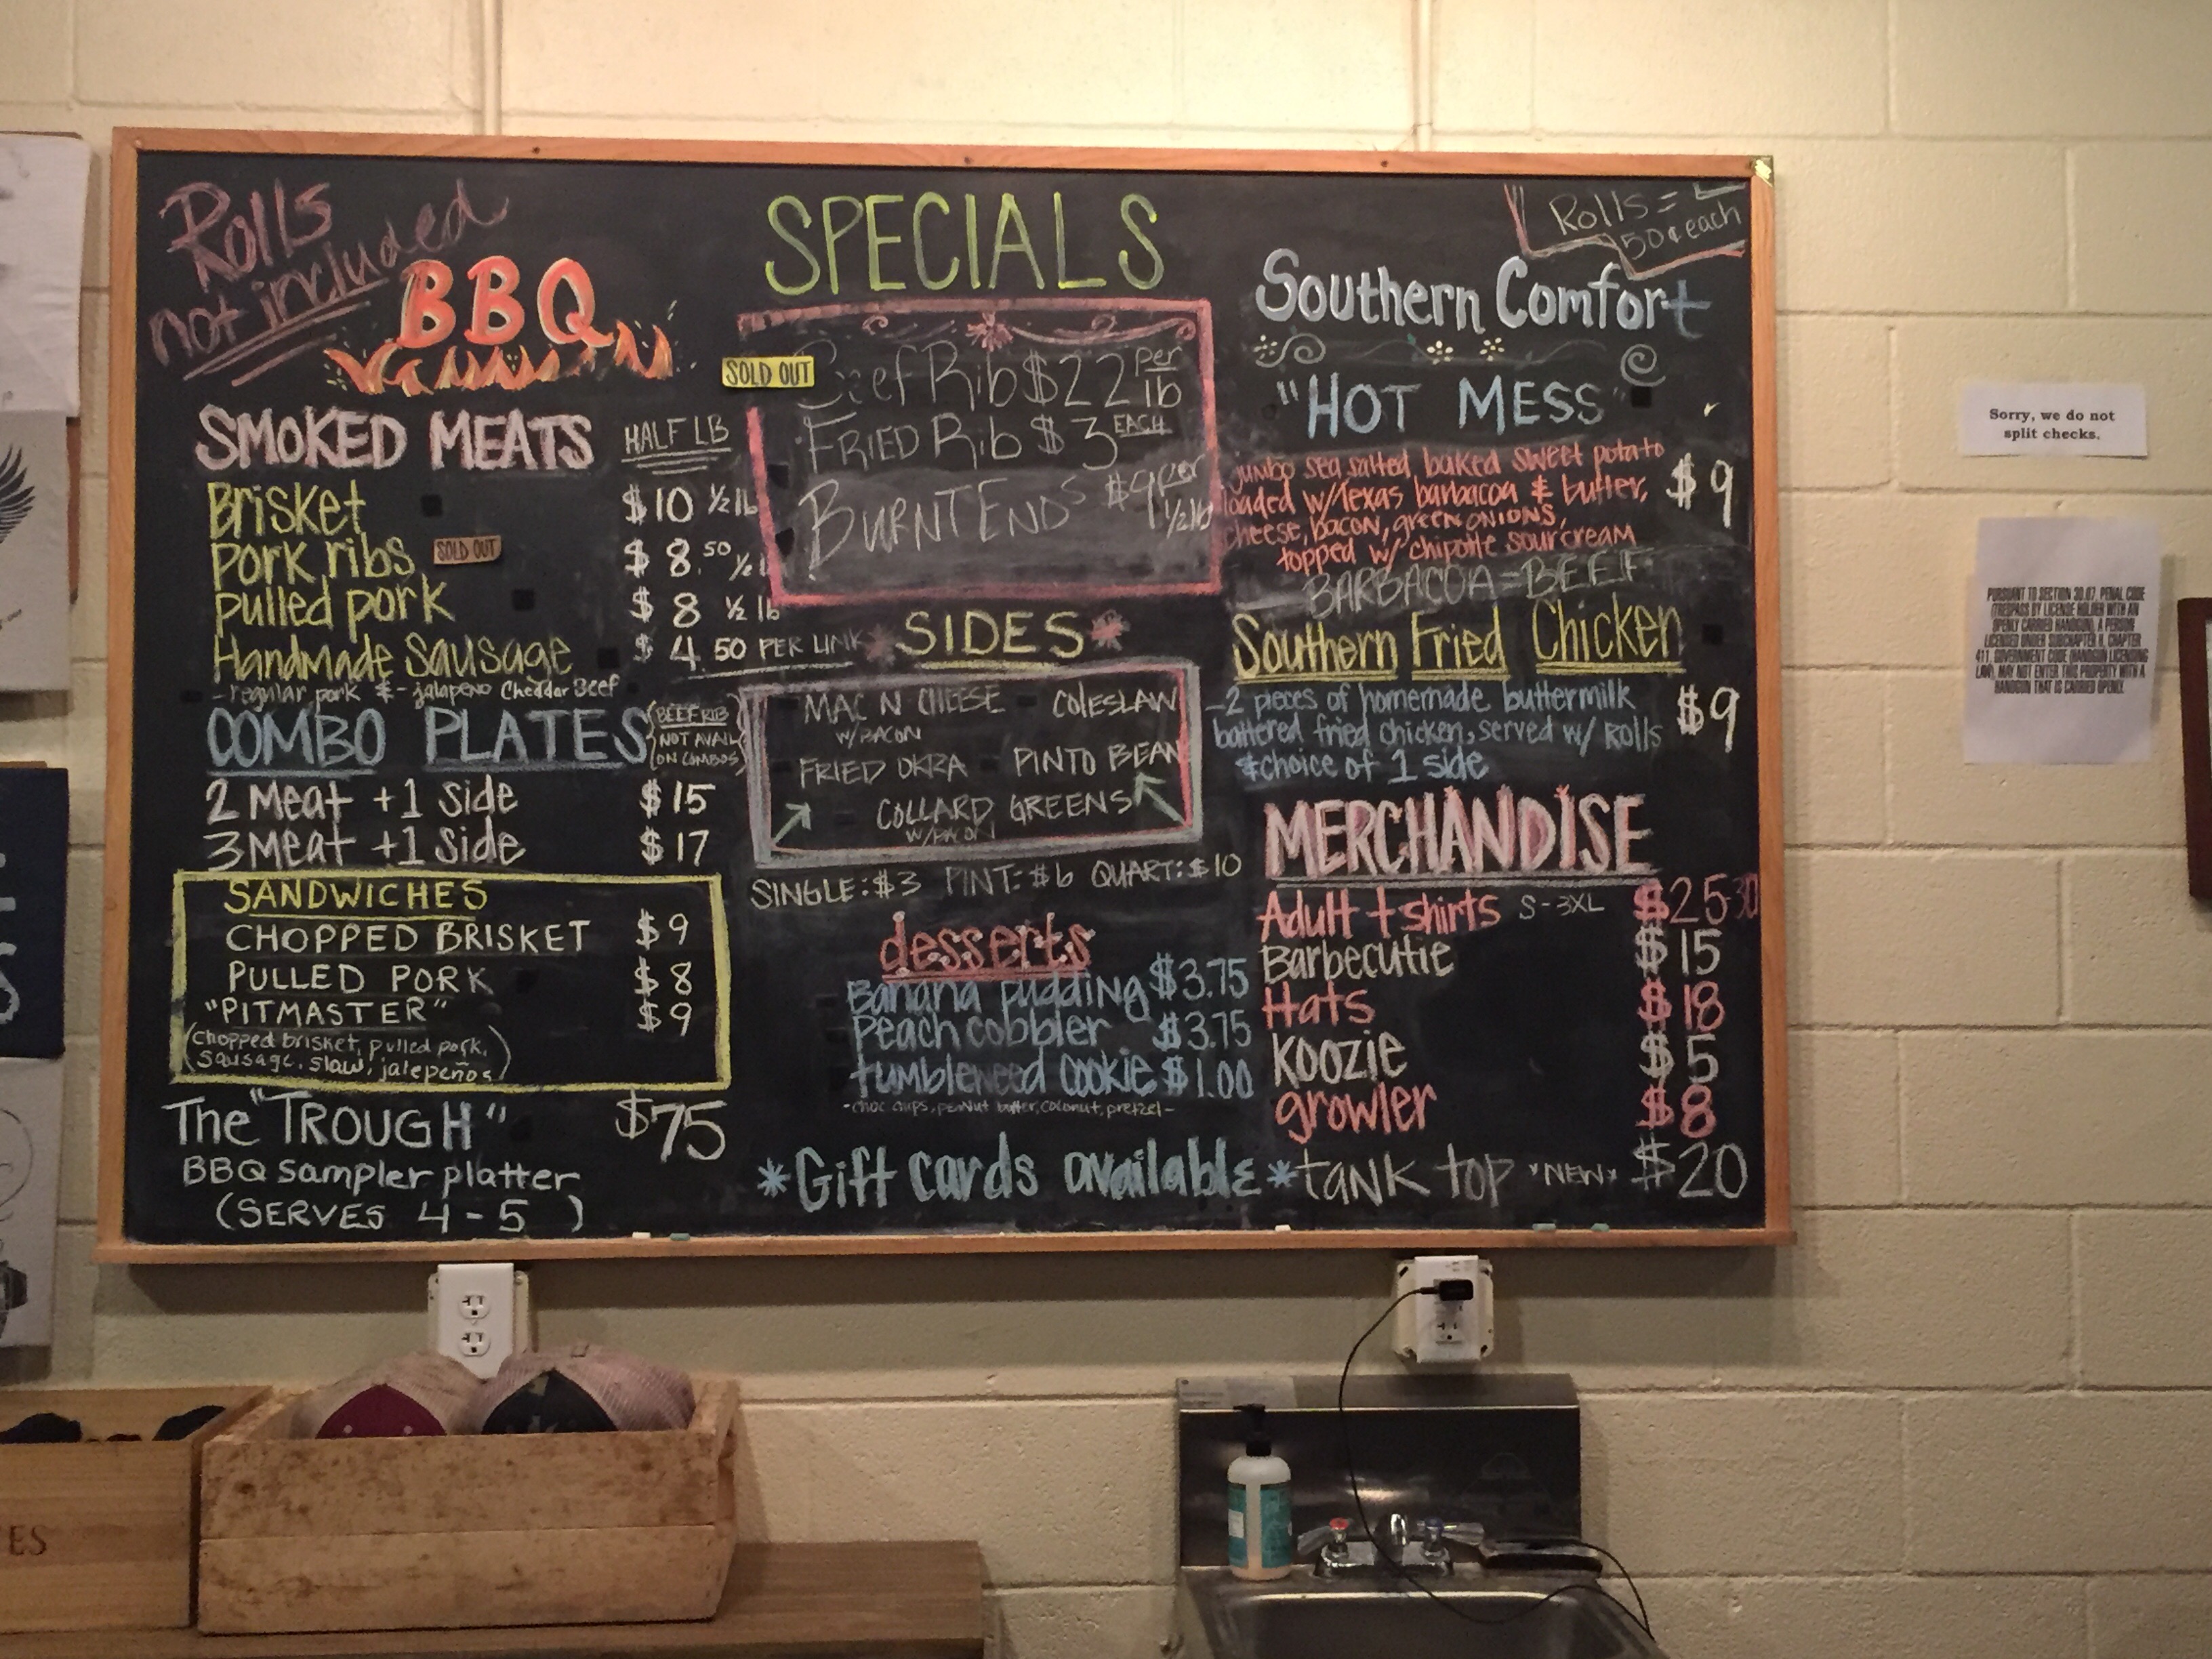 Rolls
not included
BBQ
SMOKED MEATS HALF LB
Brisket $10 ½ lb
pork ribs SOLD OUT $8.50 ½ l
pulled pork $8 ½ lb
Handmade Sausage $4.50 PER LINK
- regular pork & - jalapeno Cheddar Beef
COMBO PLATES (BEEF RIB
NOT AVAIL
ON COMBOS)
2 Meat + 1 Side $15
3 Meat + 1 Side $17
SANDWICHES
CHOPPED BRISKET $9
PULLED PORK $8
"PITMASTER" $9
(chopped brisket, pulled pork,
sausage, slaw, jalepeños)
The "TROUGH" $75
BBQ sampler platter
(SERVES 4-5)
SPECIALS
SOLD OUT Beef Rib $22 per lb
FRIED Rib $3 EACH
BURNT ENDS $9 per ½ lb
*SIDES*
MAC N CHEESE COLESLAW
W/BACON
FRIED OKRA PINTO BEAN
COLLARD GREENS
W/BACON
SINGLE: $3 PINT: $6 QUART: $10
desserts
Banana pudding $3.75
peach cobbler $3.75
tumbleweed cookie $1.00
- choc chips, peanut butter, coconut, pretzel -
*Gift cards available*
Rolls =
50¢ each
Southern Comfort
"HOT MESS"
jumbo sea salted baked sweet potato
loaded w/Texas barbacoa & butter, $9
cheese, bacon, green onions,
topped w/ chipotle sour cream
BARBACOA = BEEF
Southern Fried Chicken
-2 pieces of homemade buttermilk $9
battered fried chicken, served w/ Rolls
& choice of 1 side
MERCHANDISE
Adult t shirts S-3XL $25-30
Barbecutie $15
Hats $18
Koozie $5
growler $8
tank top *NEW* $20
Sorry, we do not
split checks.
PURSUANT TO SECTION 30.07, PENAL CODE
(TRESPASS BY LICENSE HOLDER WITH AN
OPENLY CARRIED HANDGUN), A PERSON
LICENSED UNDER SUBCHAPTER H, CHAPTER
411, GOVERNMENT CODE (HANDGUN LICENSING
LAW), MAY NOT ENTER THIS PROPERTY WITH A
HANDGUN THAT IS CARRIED OPENLY.
ES